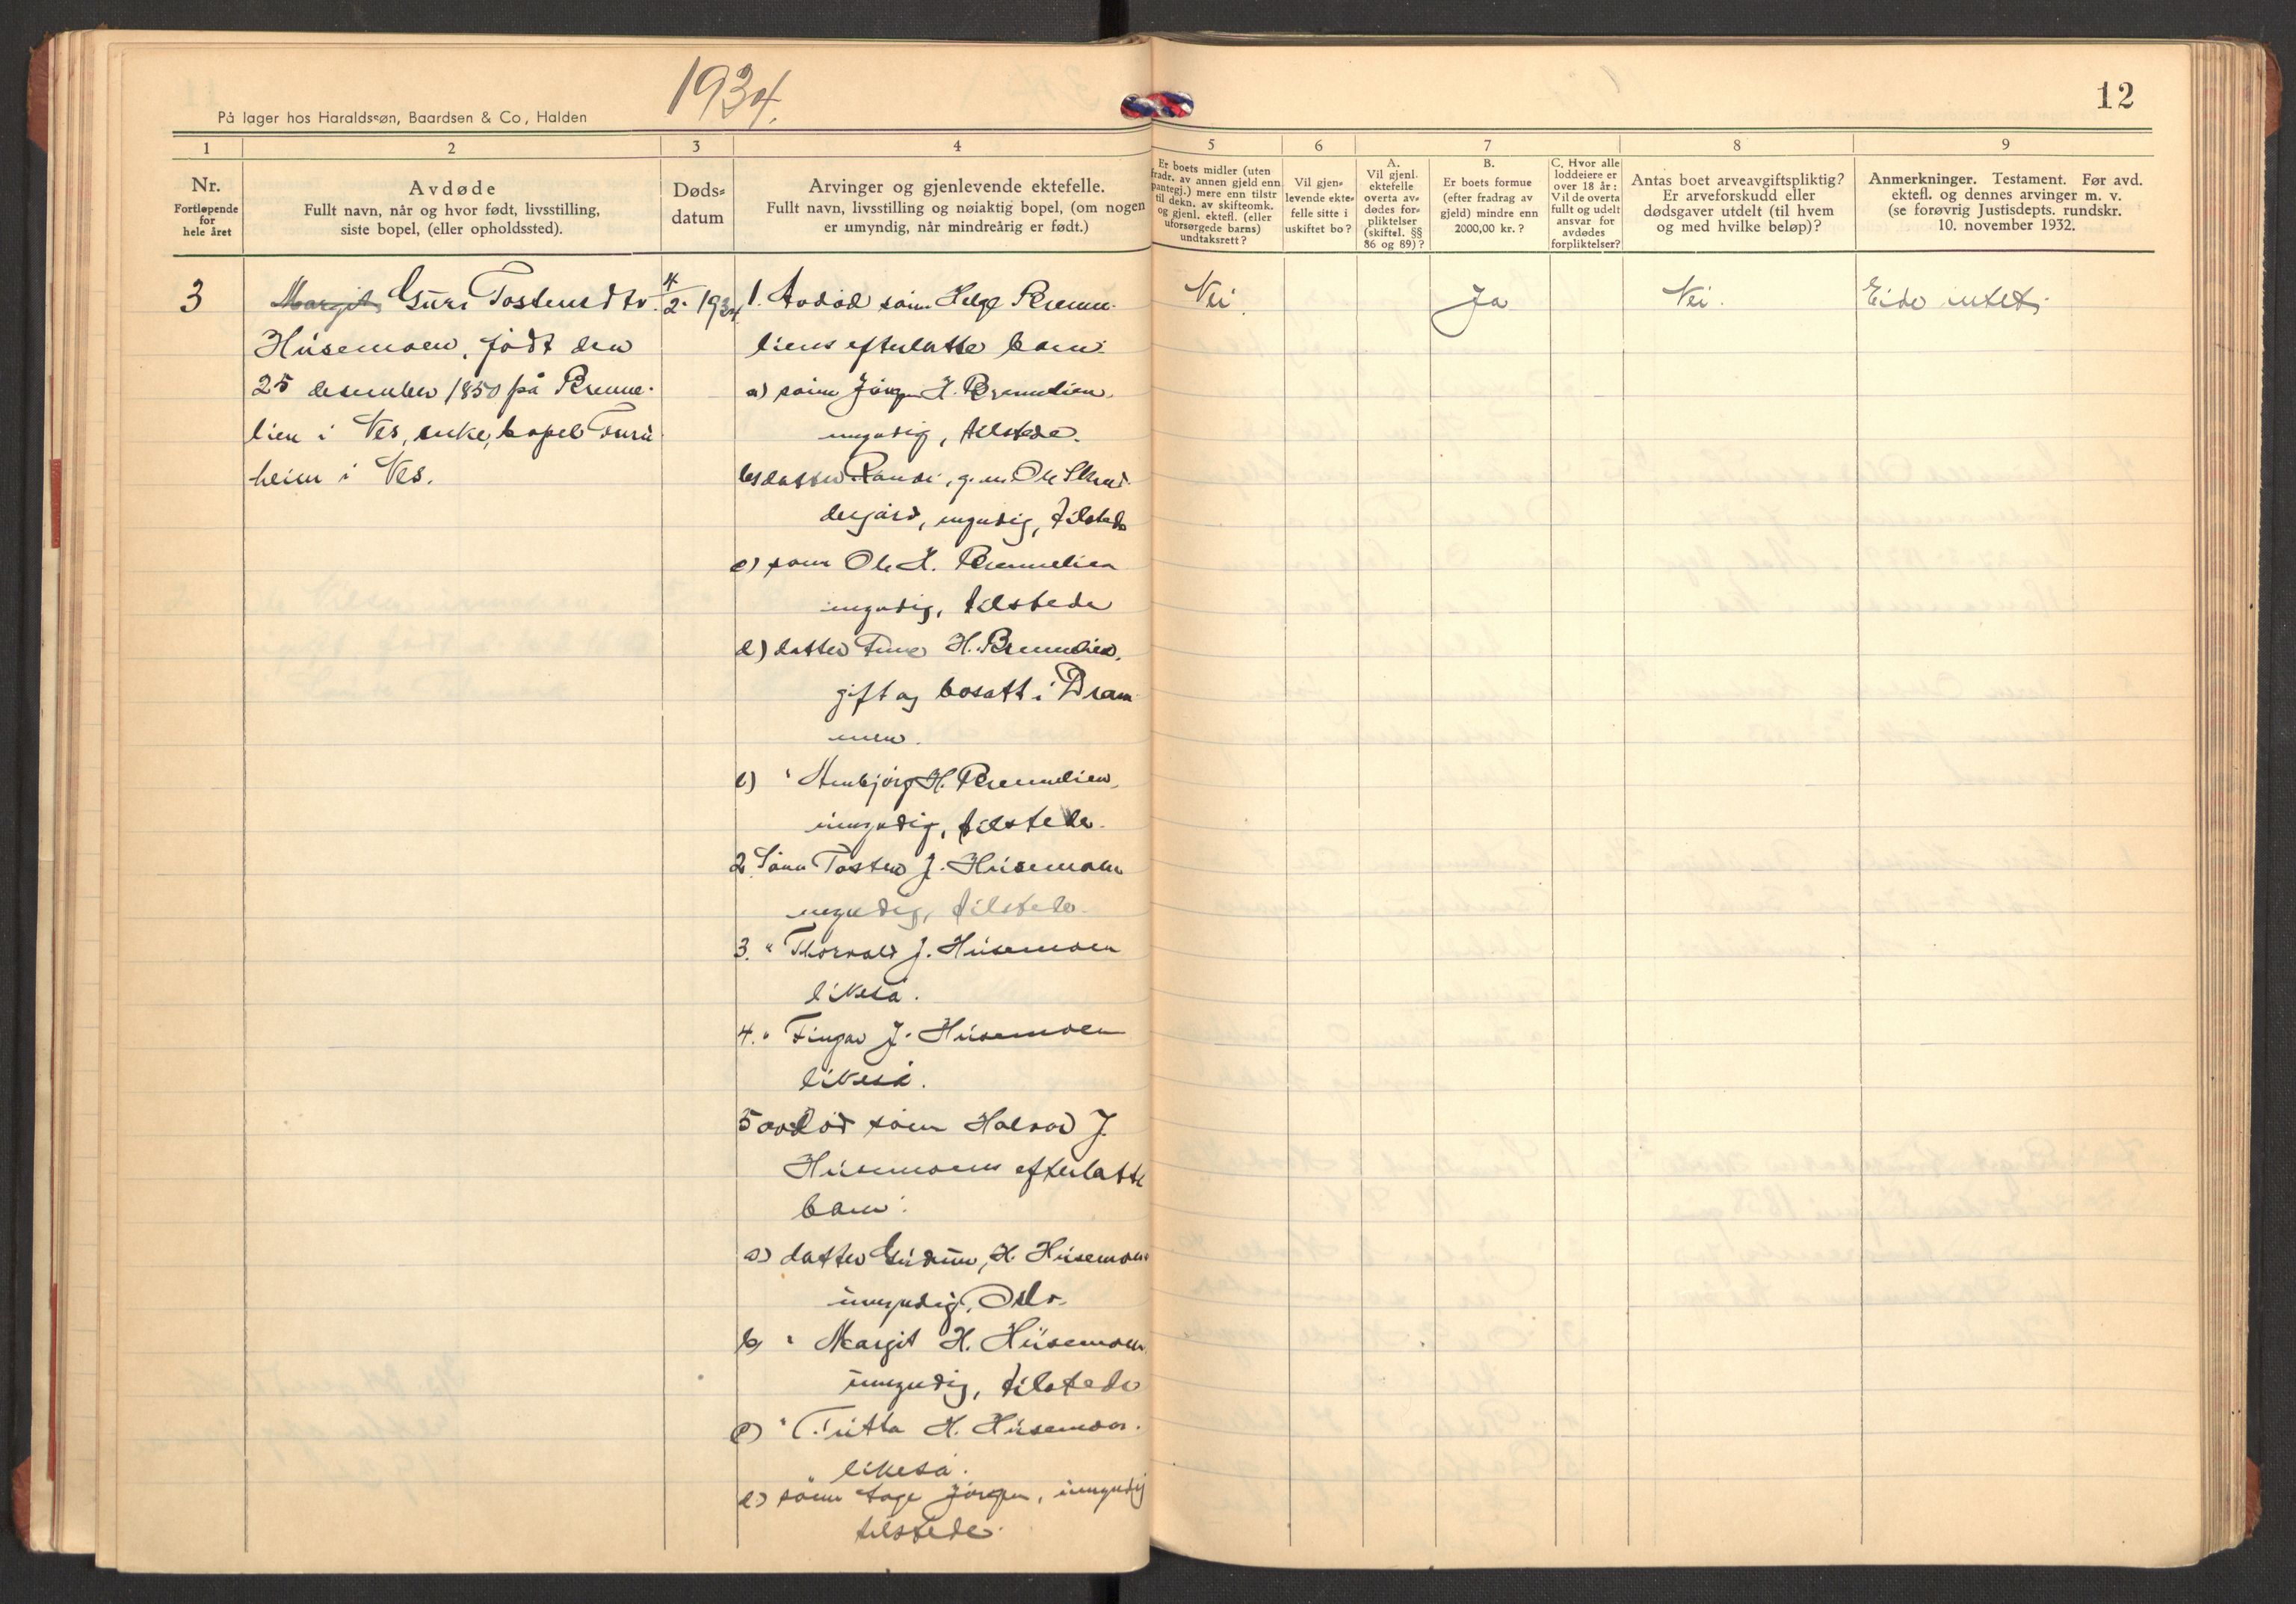 1934.
12
På lager hos Haraldssøn, Baardsen & Co, Halden
1
2
3
4
5
6
7
8
9
Nr.
Fortløpende
for
hele året
Avdøde
Fullt navn, når og hvor født, livsstilling,
siste bopel, (eller opholdssted).
Døds-
datum
Arvinger og gjenlevende ektefelle.
Fullt navn, livsstilling og nøiaktig bopel, (om nogen
er umyndig, når mindreårig er født.)
Er boets midler (uten
fradr. av annen gjeld enn
pantegj.) mere enn tilstr
til dekn. av skifteomk.
og gjenl. ektefl. (eller
uforsørgede barns)
undtaksrett?
Vil gjen-
levende ekte-
felle sitte i
uskiftet bo?
A.
Vil gjenl.
ektefelle
overta av-
dødes for-
pliktelser
(skiftel. §§
86 og 89)?
B.
Er boets formue
(efter fradrag av
gjeld) mindre enn
2000,00 kr.?
C. Hvor alle
loddeiere er
over 18 år:
Vil de overta
fullt og udelt
ansvar for
avdødes
forpliktelser?
Antas boet arveavgiftspliktig?
Er arveforskudd eller
dødsgaver utdelt (til hvem
og med hvilke beløp)?
Anmerkninger. Testament. Før avd.
ektefl. og dennes arvinger m. v.
(se forøvrig Justisdepts. rundskr.
10. november 1932.
3
Margit Guri Tostensdtr.
Husemoen, født den
25 desember 1850 på Brenne-
lien i Nes, enke, bopel Furu
heim i Nes.
4/2-1934
1. Avdød sønn Helge Brenne-
liens efterlatte barn:
a) sønn Jørgen H. Brennelien,
myndig, tilstede.
b) datter Randi, g. m. Ole
dergård, myndig, tilstede
c) sønn Ole H. Brennelien
myndig, tilstede
d) datter H. Brennelien,
gift og bosatt i Dram-
men.
e) " Armbjørg H. Brennelien,
umyndig, tilstede.
2. Sønn Tosten J. Husemoen
myndig, tilstede.
3. " Thorvald J. Husemoen
likeså.
4. " Fingar J. Husemoen
likeså.
5 avdød sønn Halvor J.
Husemoens efterlatte
barn:
a) datter Gudrun, H. Husemoen
umyndig, Oslo.
b) " Margit H. Husemoen
umyndig, tilstede
c) " H. Husemoen.
likeså.
d) sønn Åge Jørgen, umyndig
tilstede.
Nei.
Ja
Nei.
Eide intet.